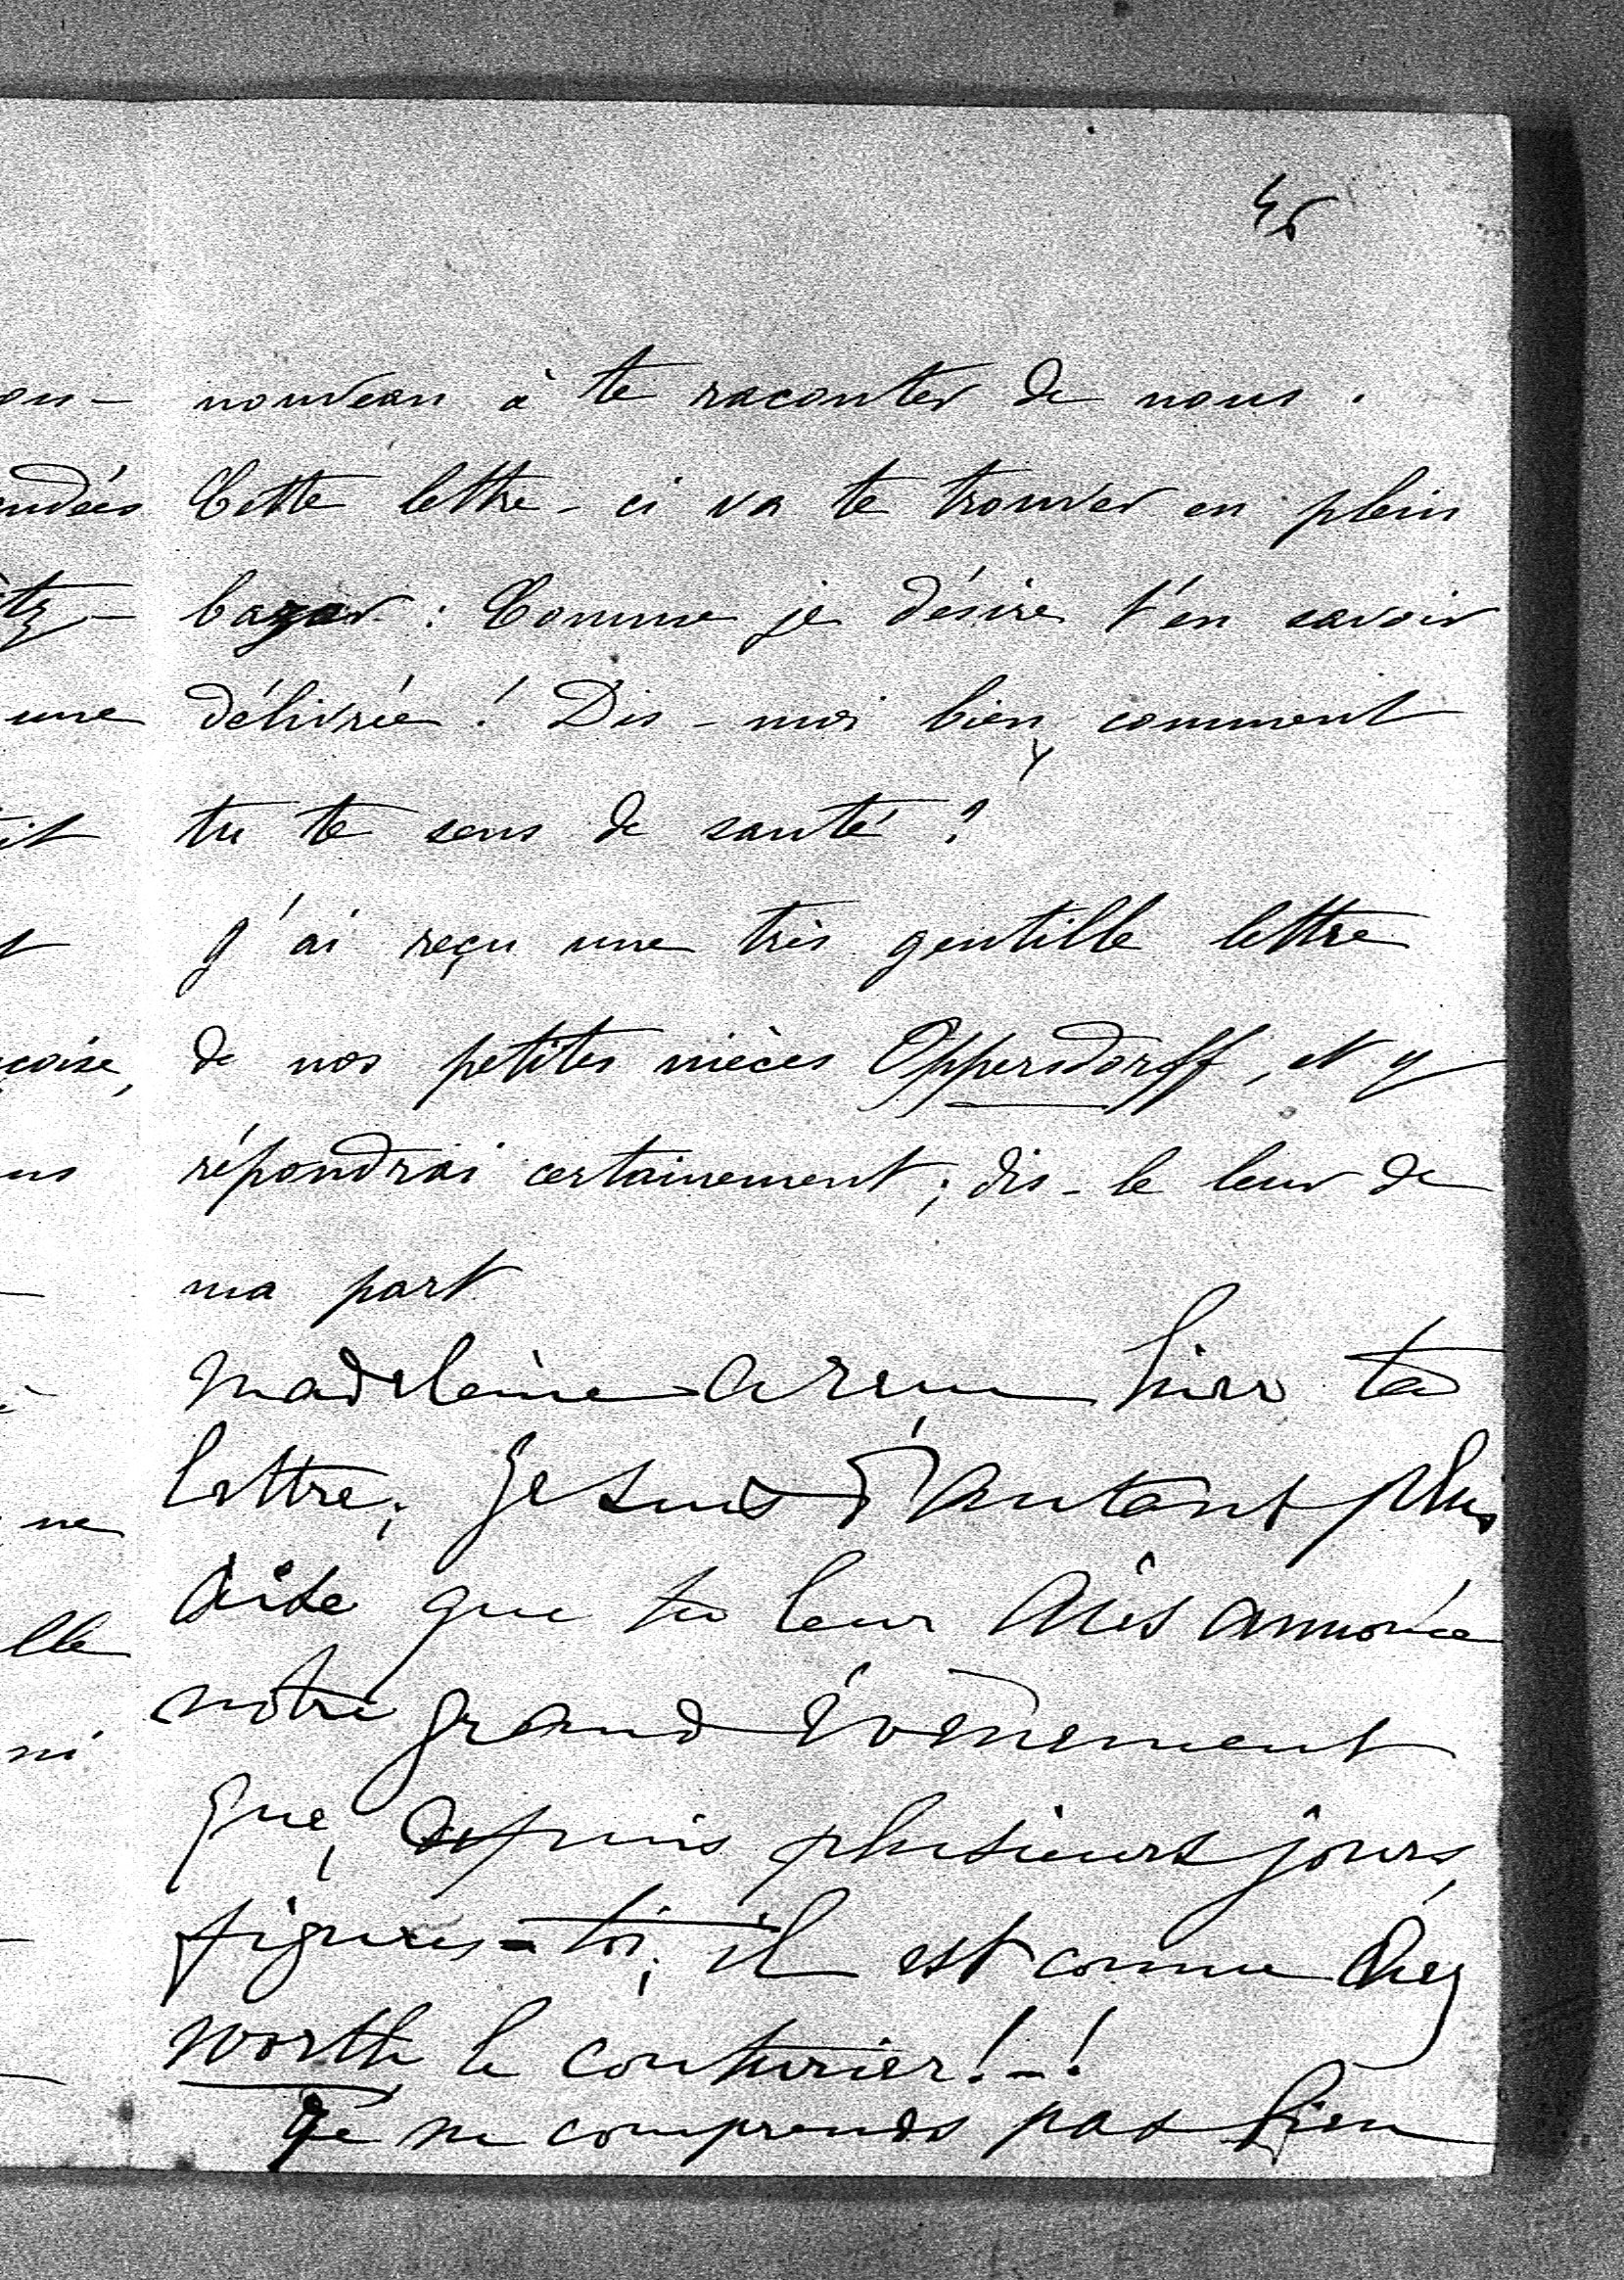 nouveau à te raconter de nous.
Cette lettre-ci va te trouver en plein
bazar : Comme je désire t'en savoir
délivrée ! Dis-moi bien comment
tu te sens de santé ?
J'ai reçu une très gentille lettre
de nos petites nièces Oppersdorff, et y
répondrai certainement ; dis-le leur de
ma part
Madeleine a reçu hier ta
lettre ; Je suis d'autant plus
aise que tu leur aies annoncé
notre grand évènement
que, depuis plusieurs jours,
figures-toi, il est connu chez
Worth le couturier ! - !
Je ne comprends pas bien
ou-
udées
tz-
une
it
t
çoise,
us
ne
lle
ni